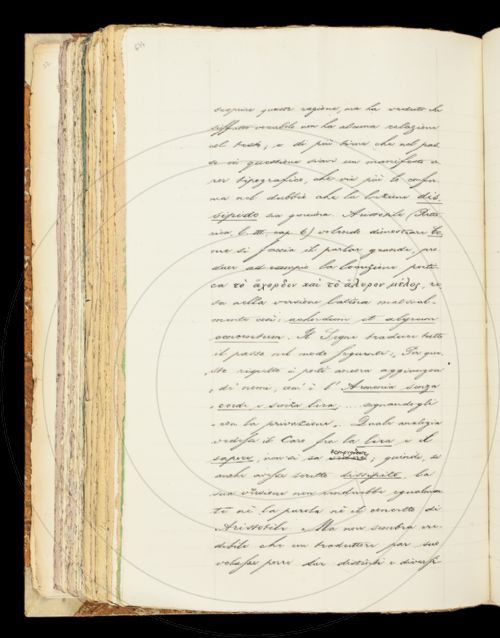 64
seguire queste ragione, ma ha veduto che
siffatto vocabolo non ha alcuna relazione
col testo, e di più trova che nel pas-
so in questione siavi un manifesto er-
ror tipografico, che vie più lo confer-
ma nel dubbio che la lezione dis-
sipido sia genuina. Aristotile (Retto-
rica, l. III, cap. 6) volendo dimostrare Co-
me si faccia il parlar grande, pro-
duce ad esempio la locuzione poeti-
ca τὸ ἄχορδον καὶ τὸ ἄλυρον μέλος, re-
sa nella versione latina material-
mente così: 
concentum. Il Segni traduce tutto
il passo nel modo seguente: Per que-
sto rispetto i poeti ancora aggiungon
di nomi, com' è l' Armonia senza
corde, e senza lira; ... 
con la privazione. Quale analogia
vedesse il Caro fra la lira e il
sapore, non si sa comprendere; quindi, se
anche avesse scritto dissipito, la
sua versione non renderebbe egualmen-
te nè la parola nè il concetto di
Aristotile. Ma non sembra cre-
dibile che un traduttore par suo
volesse porre due distinti e diversi